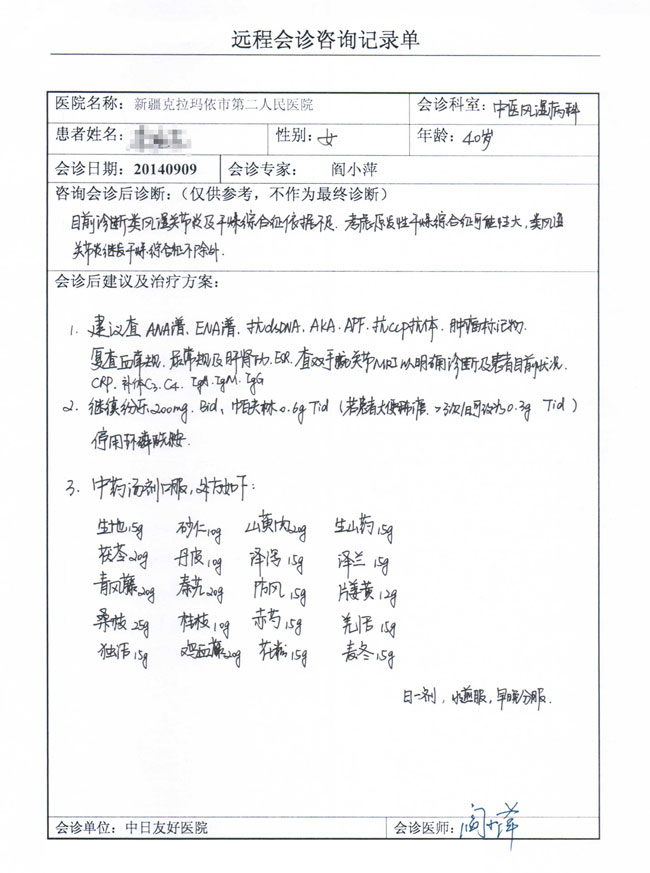 远程会诊咨询记录单
医院名称：新疆克拉玛依市第二人民医院 会诊科室：中医风湿病科
患者姓名： 性别：女 年龄：40岁
会诊日期：20140909 会诊专家： 阎小萍
咨询会诊后诊断：（仅供参考，不作为最终诊断）
目前诊断类风湿关节炎及干燥综合征依据不足．考虑原发性干燥综合征可能性大，类风湿
关节炎继发干燥综合征不除外．
会诊后建议及治疗方案：
1. 建议查 ANA谱、ENA谱、抗dsDNA、AKA、APF、抗CCP抗体、肿瘤标记物．
复查血常规、尿常规及肝肾功、ESR、查双手腕关节MRI以明确诊断及患者目前状况．
CRP、补体C3、C4、IgA、IgM、IgG
2. 继续纷乐200mg．Bid、帕夫林0.6g Tid（若患者大便稀溏，>3次/日可改为0.3g Tid）
停用环磷酰胺．
3. 中药汤剂口服，处方如下：
生地15g 砂仁10g 山萸肉20g 生山药15g
茯苓20g 丹皮10g 泽泻15g 泽兰15g
青风藤20g 秦艽20g 防风15g 片姜黄12g
桑枝25g 桂枝10g 赤芍15g 羌活15g
独活15g 鸡血藤20g 花粉15g 麦冬15g
日一剂，水煎服，早晚分服．
会诊单位：中日友好医院 会诊医师：阎小萍